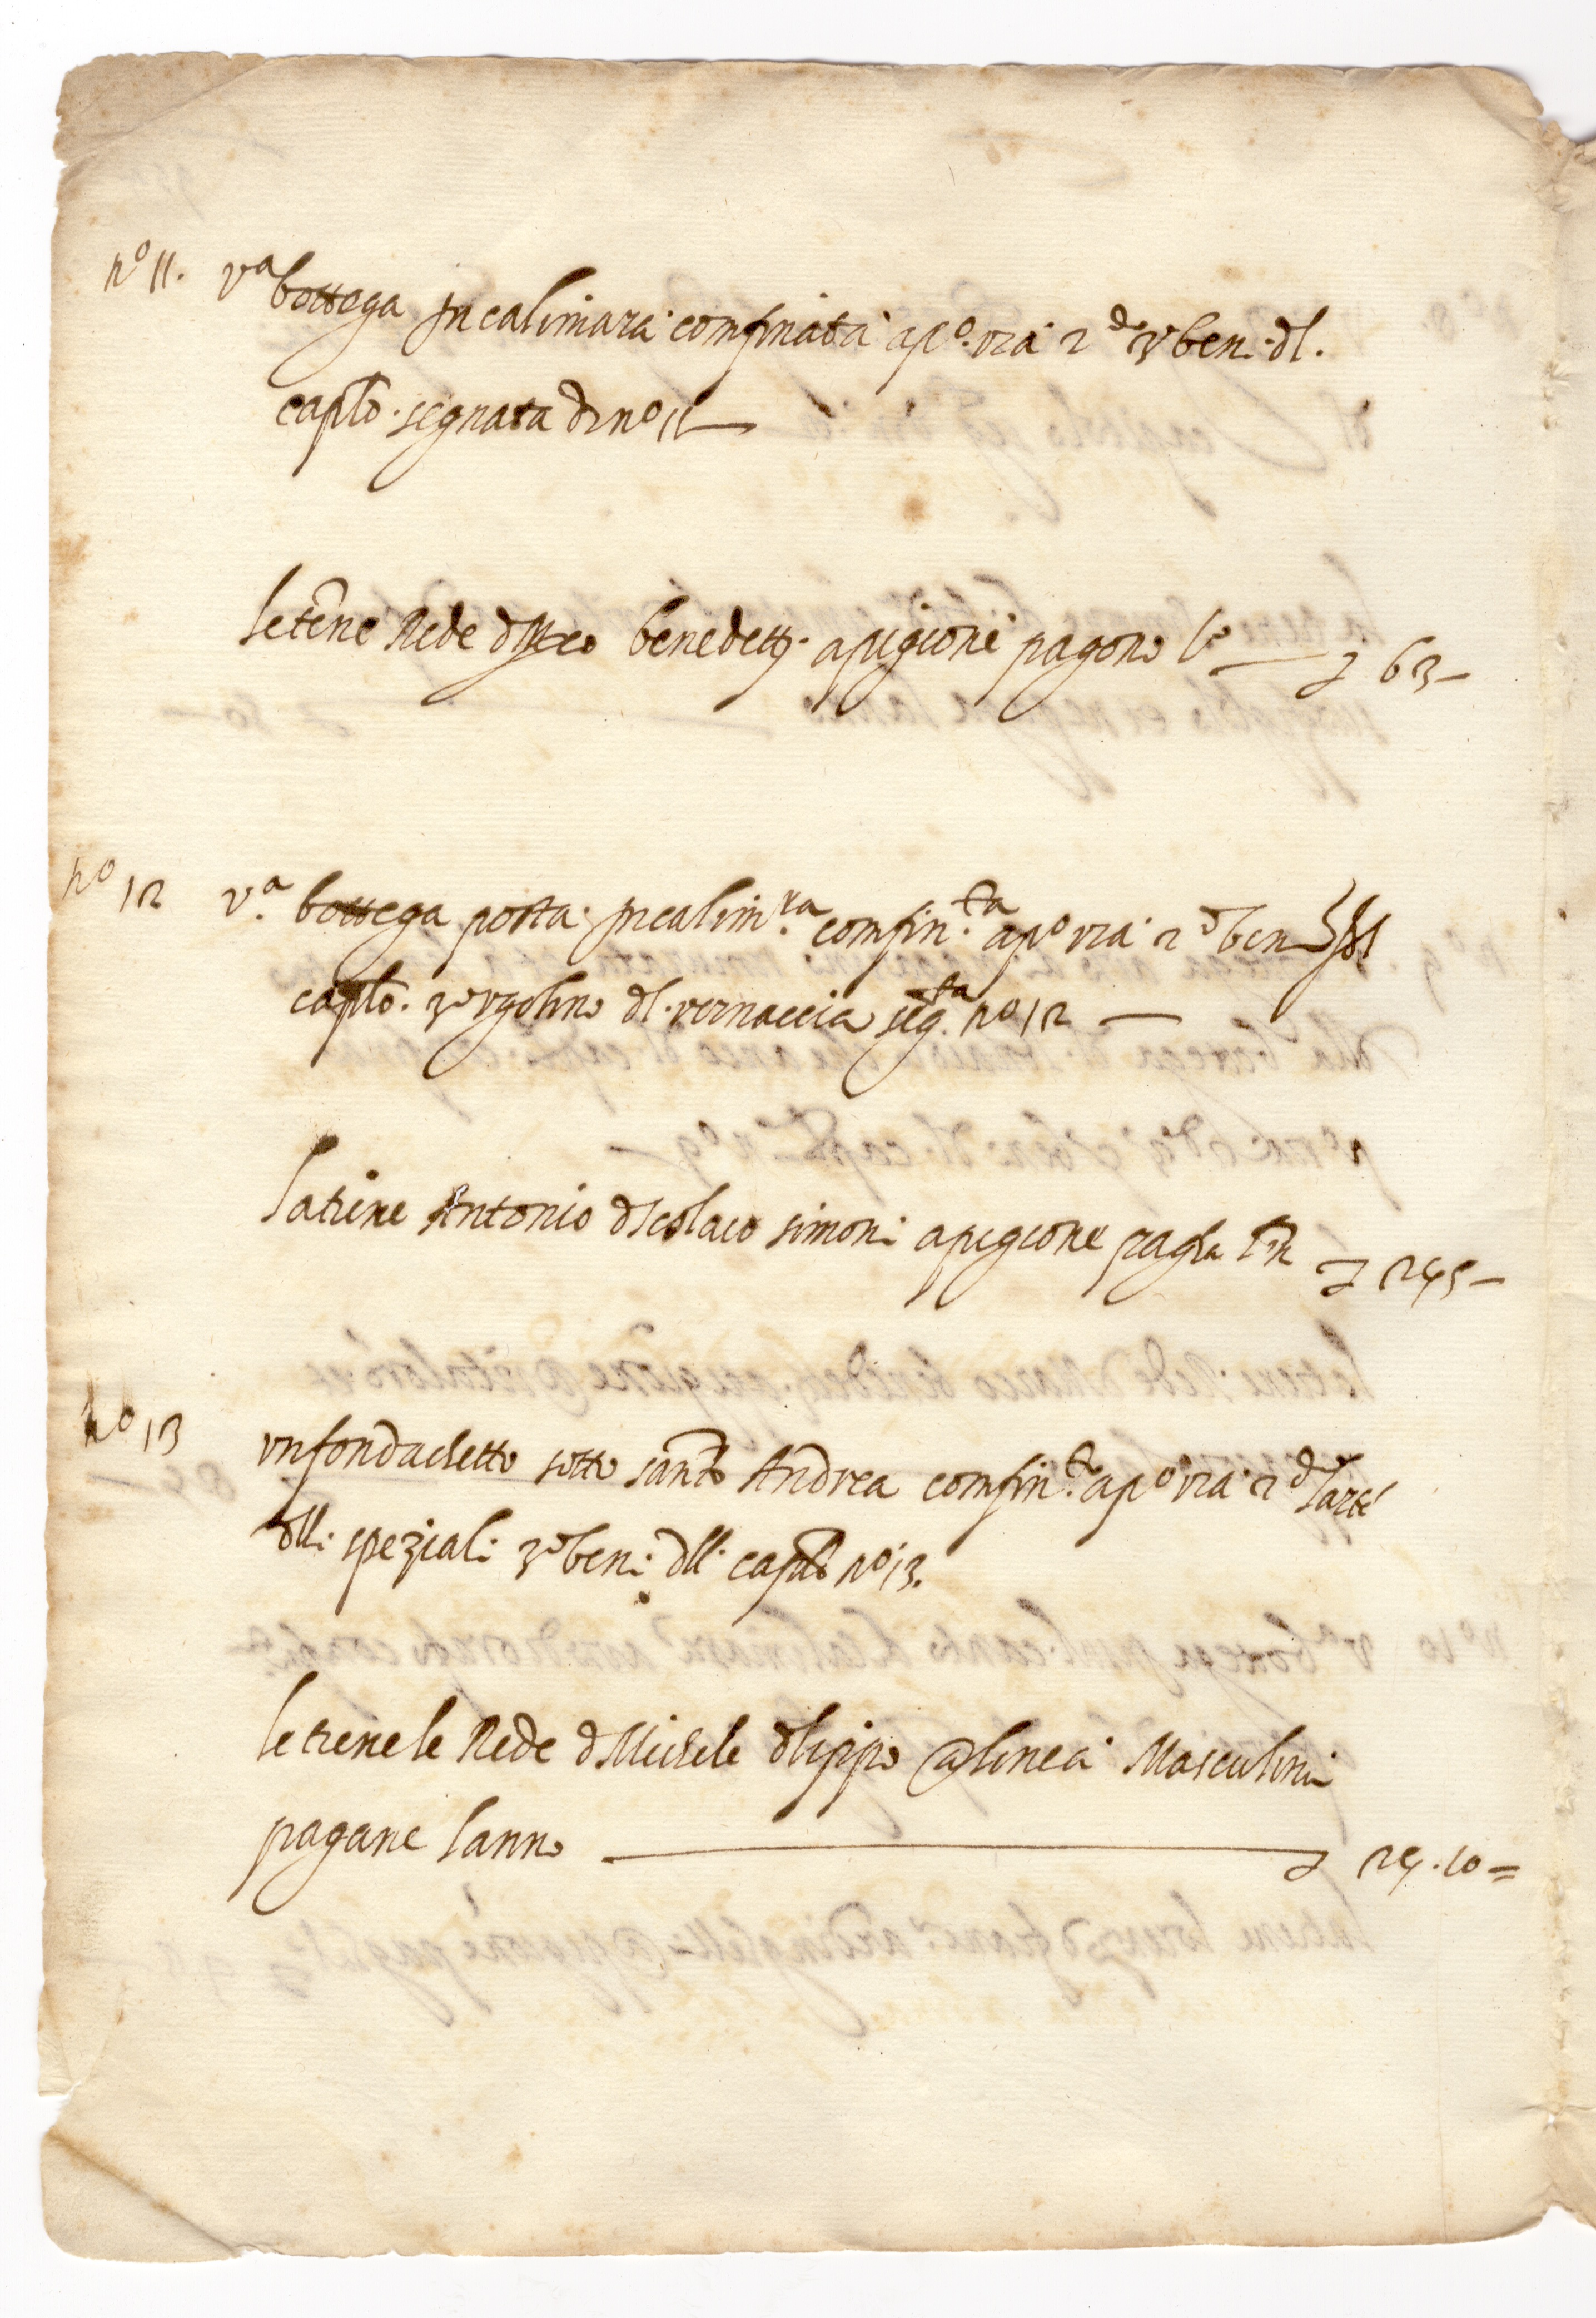 nº 11. vª bottega in calimara confinata a pº via 2º 3º ben. dl.
caplo. segnata di nº 11
le tene Rede d benedetti a pigione pagono lº 63
nº 12 vª bottega posta in calimra confin.ta a pº via 2º ben dl
caplo. 3º vgolino dl. vernaccia seg.ta nº 12
la tiene Antonio di Scolaio simoni a pigione pagha 245
nº 13 un fondachetto sotto santo Andrea confin.to a pº via 2º larte
dlli speziali 3º beni dll. caplo nº 13.
le tiene le Rede d Michele d lippo a linea Masculina
pagane lanno 24.10